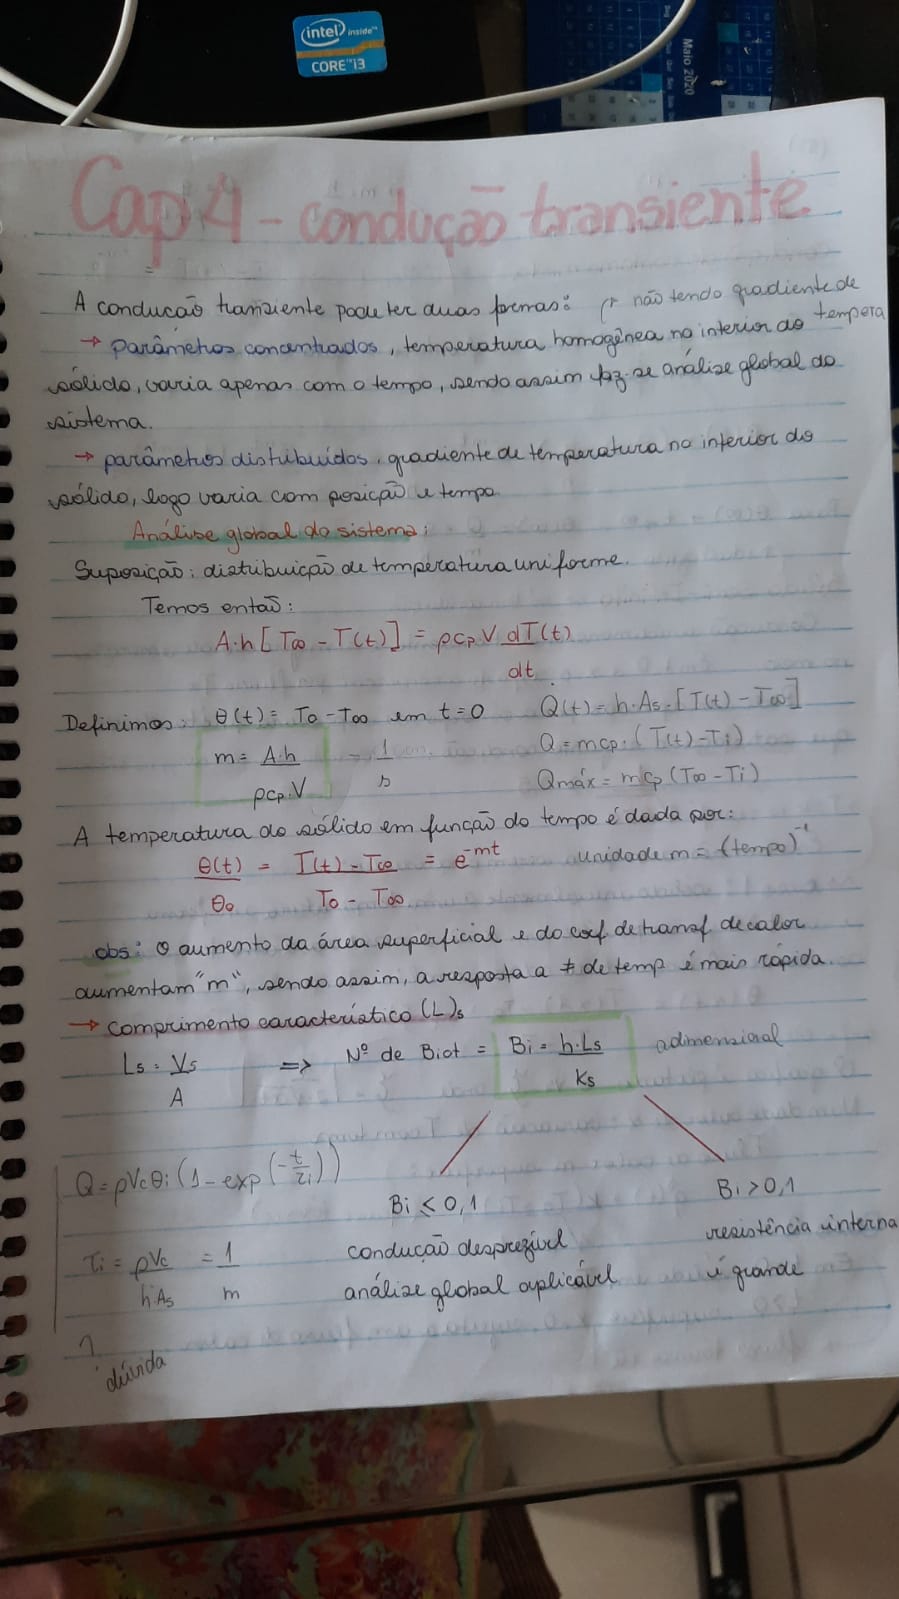 intel inside™
CORE™i3
Maio 2020
Cap 4 - condução transiente
A condução transiente pode ter duas formas: não tendo gradiente de
→ parâmetros concentrados, temperatura homogênea no interior do tempera
sólido, varia apenas com o tempo, sendo assim faz-se análise global do
sistema.
→ parâmetros distribuídos, gradiente de temperatura no interior do
sólido, logo varia com posição e tempo.
Análise global do sistema:
Suposição: distribuição de temperatura uniforme.
Temos então:
A·h[T∞ - T(t)] = ρcpV dT(t)
dt
Definimos: θ(t) = To - T∞ em t=0 Q̇(t) = h·As·[T(t) - T∞]
m = A·h = 1 Q = mcp·(T(t) - Ti)
ρcp·V s Qmáx = mcp(T∞ - Ti)
A temperatura do sólido em função do tempo é dada por:
θ(t) = T(t) - T∞ = e^-mt unidade m = (tempo)^-1
θo To - T∞
obs: O aumento da área superficial e do coef de transf de calor
aumentam "m", sendo assim, a resposta a ≠ de temp é mais rápida.
→ comprimento característico (L)s
Ls = Vs ⇒ Nº de Biot = Bi = h·Ls adimensional
A Ks
Q = ρVcθi(1 - exp(-t/τi))
Bi < 0,1 Bi > 0,1
τi = ρVc = 1 condução desprezível resistência interna
h·As m análise global aplicável é grande
dúvida